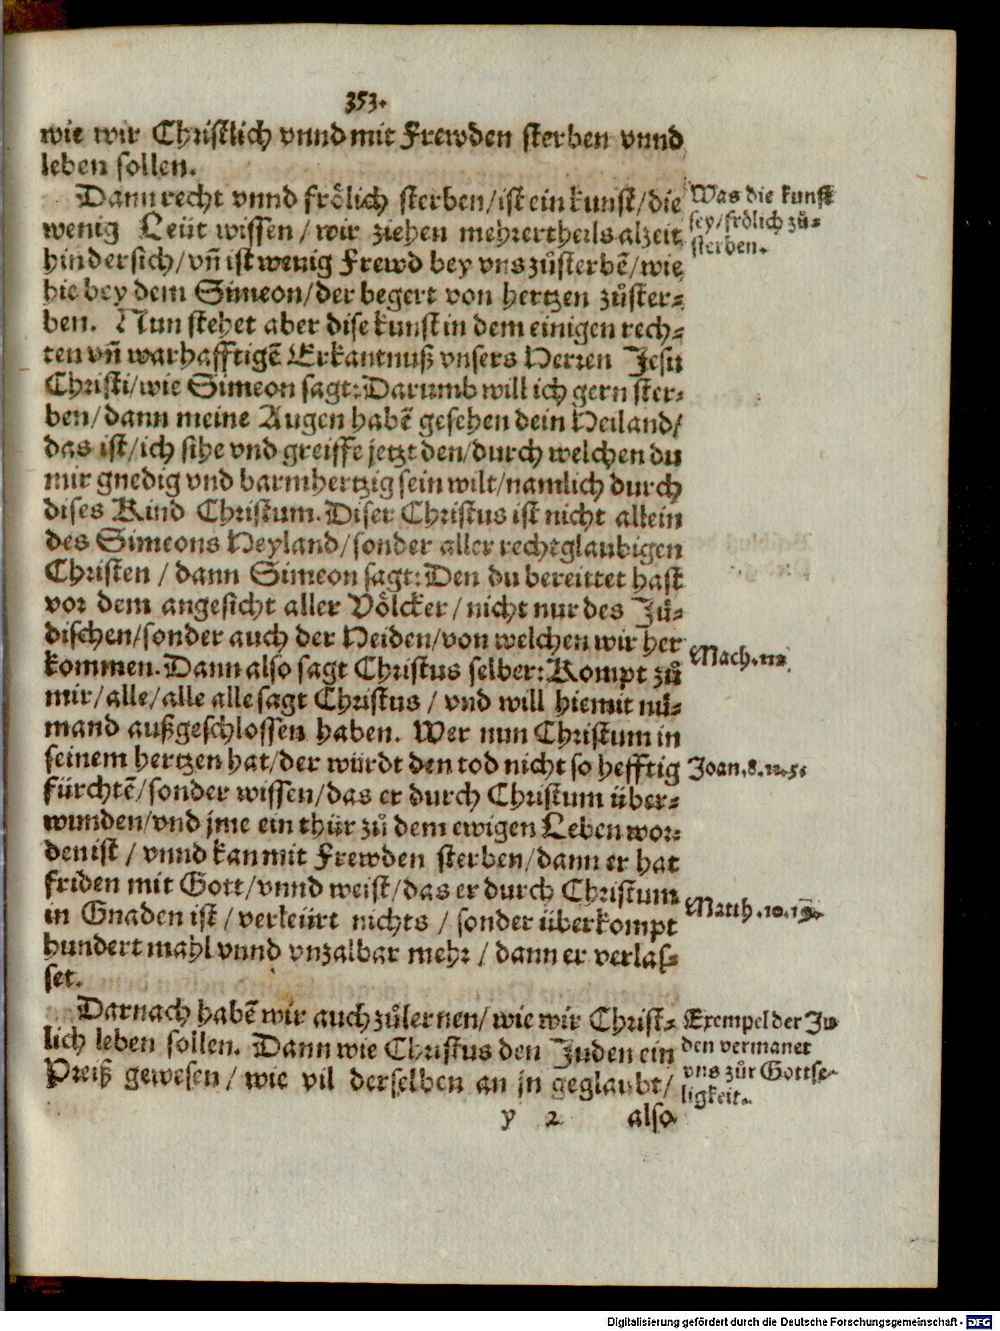 353.
wie wir Christlich vnnd mit Frewden sterben vnnd
leben sollen.
Dann recht vnnd frölich sterben/ist ein kunst/die
wenig Leüt wissen/wir ziehen mehrertheils alzeit
hindersich/vñ ist wenig Frewd bey vns zůsterbẽ/wie
hie bey dem Simeon/der begert von hertzen zůster-
ben. Nun stehet aber dise kunst in dem einigen rech-
ten vñ warhafftigẽ Erkantnuß vnsers Herren Jesu
Christi/wie Simeon sagt: Darumb will ich gern ster-
ben/dann meine Augen habẽ gesehen dein Heiland/
das ist/ich sihe vnd greiffe jetzt den/durch welchen du
mir gnedig vnd barmhertzig sein wilt/namlich durch
dises Kind Christum. Diser Christus ist nicht allein
des Simeons Heyland/sonder aller rechtglaubigen
Christen/dann Simeon sagt: Den du bereittet hast
vor dem angesicht aller Völcker/nicht nur des Jü-
dischen/sonder auch der Heiden/von welchen wir her
kommen. Dann also sagt Christus selber: Kompt zů
mir/alle/alle alle sagt Christus/vnd will hiemit nü-
mand außgeschlossen haben. Wer nun Christum in
seinem hertzen hat/der würdt den tod nicht so hefftig
fürchtẽ/sonder wissen/das er durch Christum über-
wunden/vnd jme ein thür zů dem ewigen Leben wor-
den ist/vnnd kan mit Frewden sterben/dann er hat
friden mit Gott/vnnd weist/das er durch Christum
in Gnaden ist/verleürt nichts/sonder überkompt
hundert mahl vnnd vnzalbar mehr/dann er verlas-
set.
Darnach habẽ wir auch zůlernen/wie wir Christ-
lich leben sollen. Dann wie Christus den Juden ein
Preiß gewesen/wie vil derselben an jn geglaubt/
y 2 also
Was die kunst
sey/frölich zů-
sterben.
Mach.
Joan. 8.
Matth. 10. 19.
Exempel der Ju-
den vermanet
vns zůr Gottse-
ligkeit.
Digitalisierung gefördert durch die Deutsche Forschungsgemeinschaft - DFG